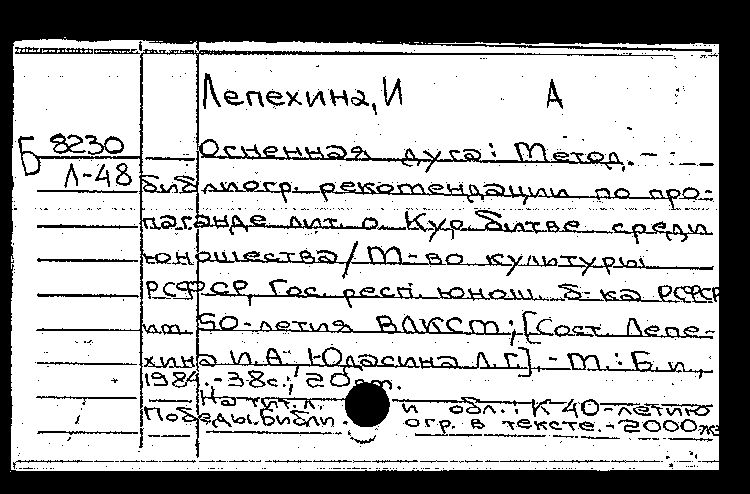 Лепехина, И А
Б 8230
Л-48
Огненная дуга: Метод.-
библиогр. рекомендации по про-
паганде лит. о Кур. битве среди
юношества/М-во культуры
РСФСР, Гос. респ. юнош. б-ка РСФСР
им. 50-летия ВЛКСМ; [Сост. Лепе-
хина И.А., Юдасина Л.Г.]. - М.: Б.и.,
1984. - 38с.; 20 см.
На тит. л. и обл.: К 40-летию
Победы. Библиогр. в тексте. - 2000